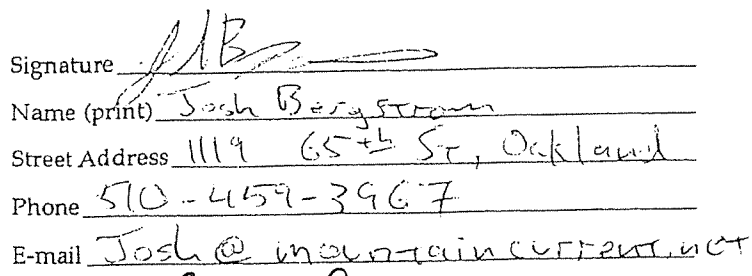 Signature
Name (print) Josh Bergstrom
Street Address 1119 65th St, Oakland
Phone 510-459-3967
E-mail Josh@mountaincurrent.net